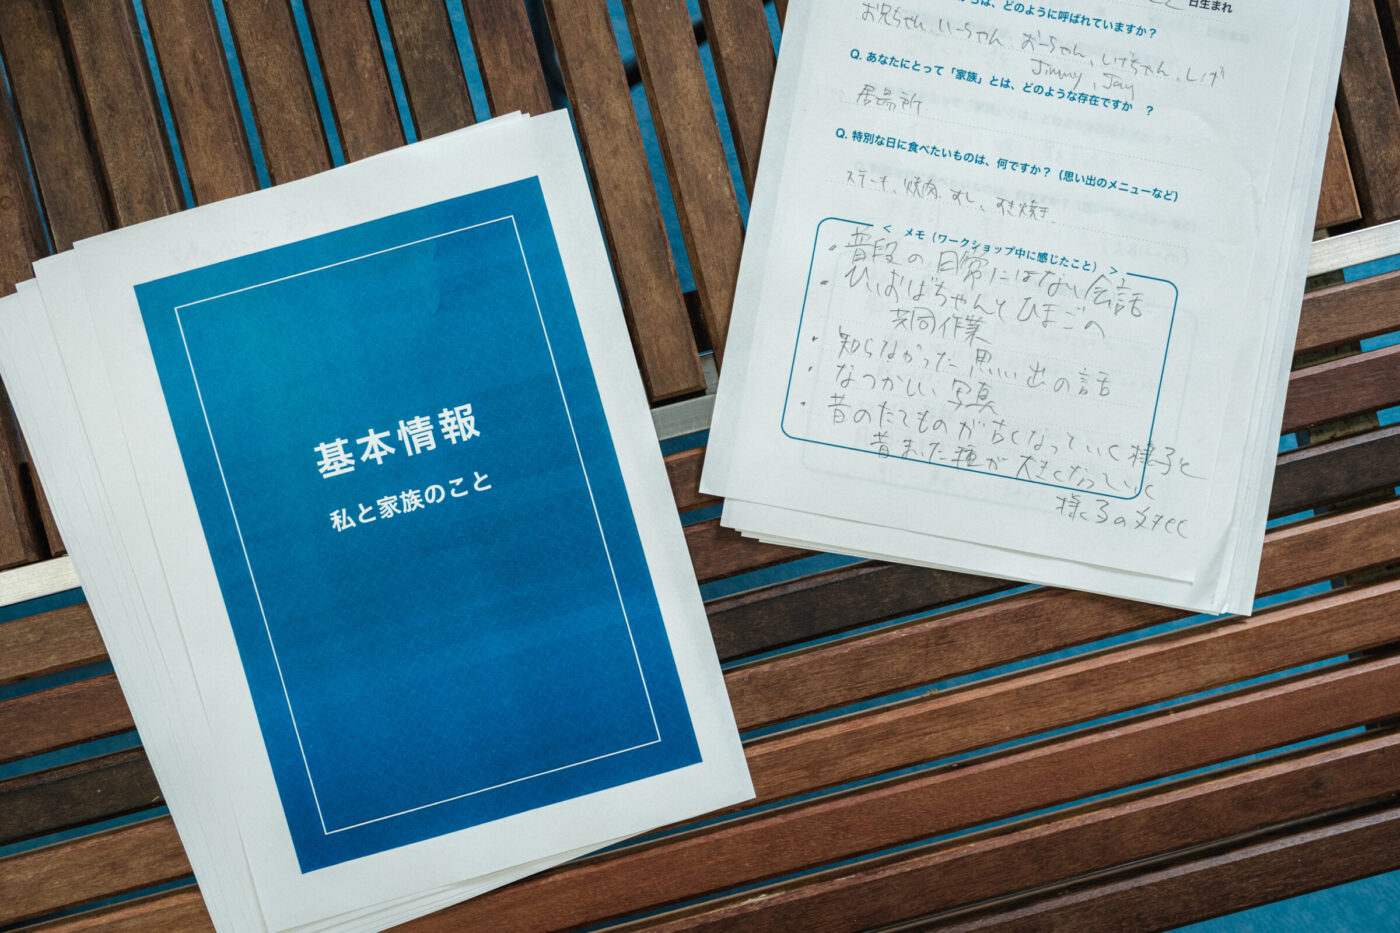 基本情報
私と家族のこと
日生まれ
は、どのように呼ばれていますか？
お兄ちゃん、いーちゃん、おーちゃん、しげちゃん、しげ
Jimmy、Jay
Q. あなたにとって「家族」とは、どのような存在ですか ？
居場所
Q. 特別な日に食べたいものは、何ですか？（思い出のメニューなど）
ステーキ、焼肉、すし、すき焼き
＜ メモ（ワークショップ中に感じたこと） ＞
・普段の日常にはない会話
・ひいおばちゃんとひまごの
共同作業
・知らなかった思い出の話
・なつかしい写真
・昔のたてものが古くなっていく様子と
昔まいた種が大きくなっていく
様子の対比